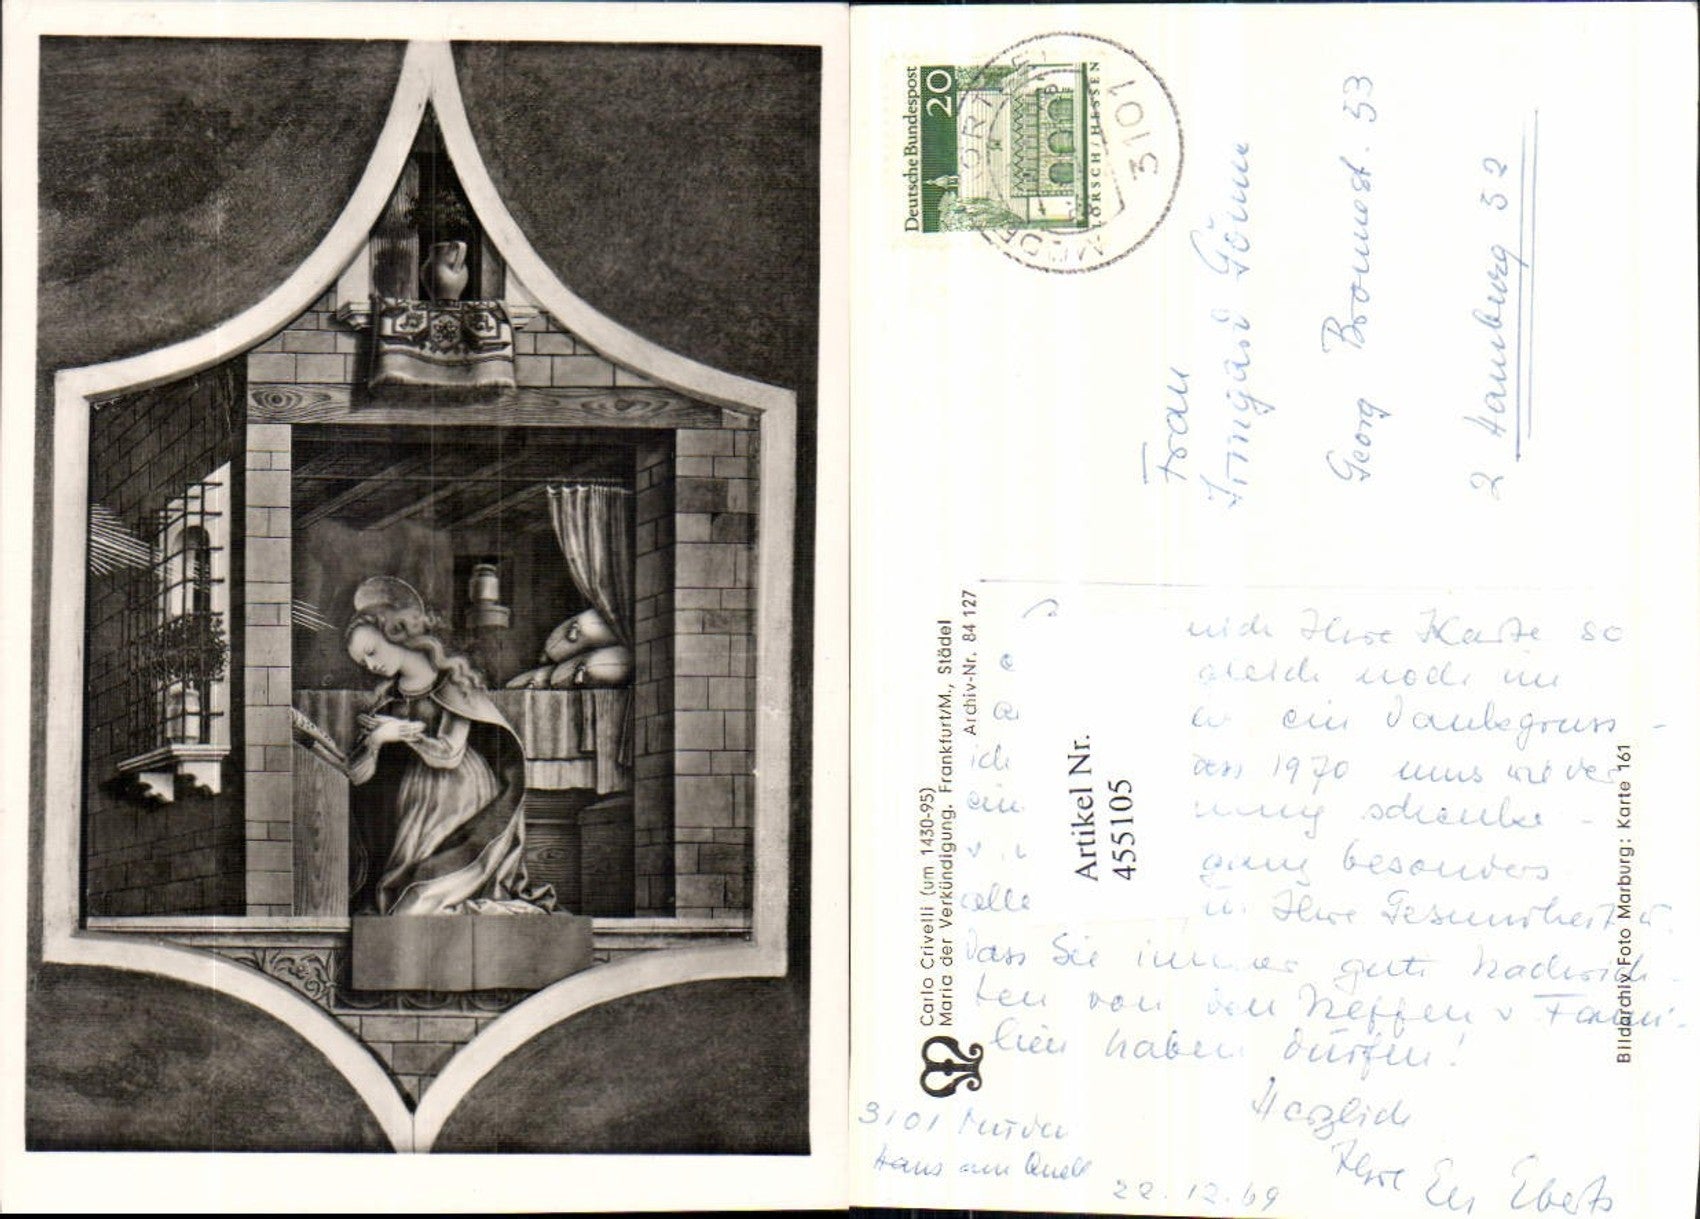 Deutsche Bundespost
20
LORSCH/HESSEN
3101
Frau
Irmgard
Georg Bonnest. 33
2 Hamburg 52
Carlo Crivelli (um 1430-95)
Maria der Verkündigung. Frankfurt/M., Städel
Archiv-Nr. 84 127
Artikel Nr.
455105
Bildarchiv Foto Marburg: Karte 161
mich Ihre Karte so
gleich noch im
ein Dankgruss -
ich dass 1970 uns wieder
ein schenke -
ganz besonders
alle Ihre Gesundheit u.
dass Sie immer gute Nachrich-
ten von den Neffen u Fami-
lien haben dürfen!
Herzlich
Ihre Eberts
3101
Haus am Quell
22.12.69